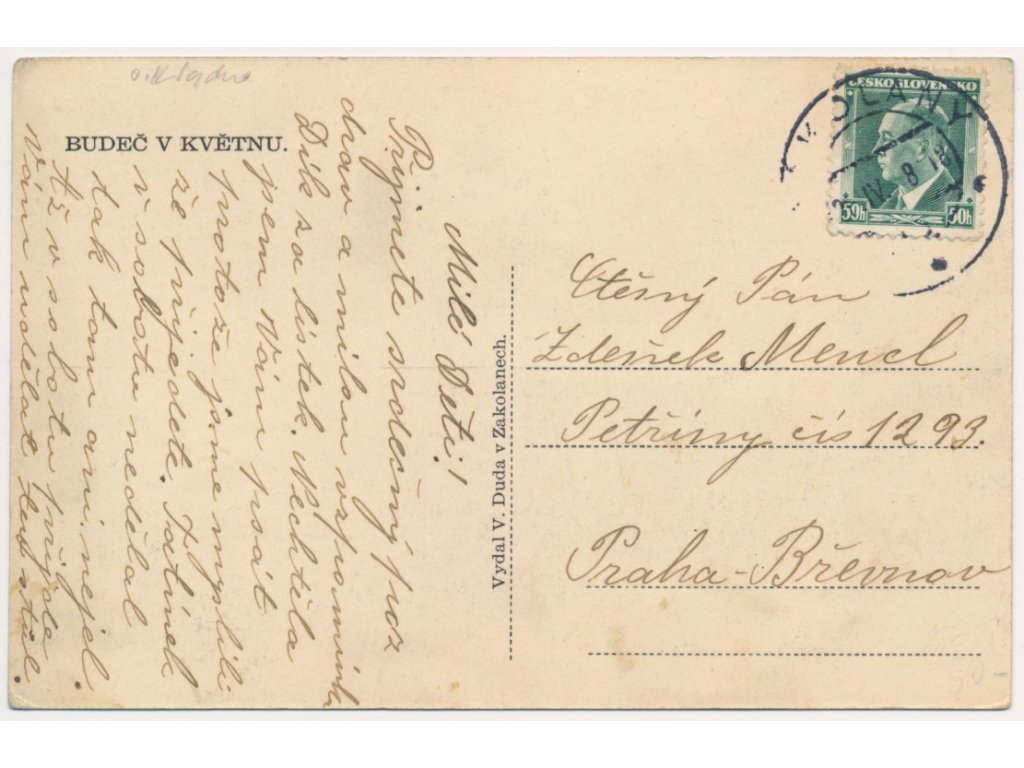 o. Kladno
BUDEČ V KVĚTNU.
Milé Děti!
Přijmete srdečný poz
drav a milou vzpomínk
Dík za lístek. Nechtěla
jsem Vám psát
protože jsme myslili
že přijedete. Tatínek
v sobotu nedělal
tak tam ani nejel.
Až v sobotu přijela
Vám udělat
Vydal V. Duda v Zakolanech.
ČESKOSLOVENSKO
50h 50h
KOLANY
IV. 8 18
Ctěný Pán
Zdeněk Mencl
Petřiny čís 1293.
Praha-Břevnov